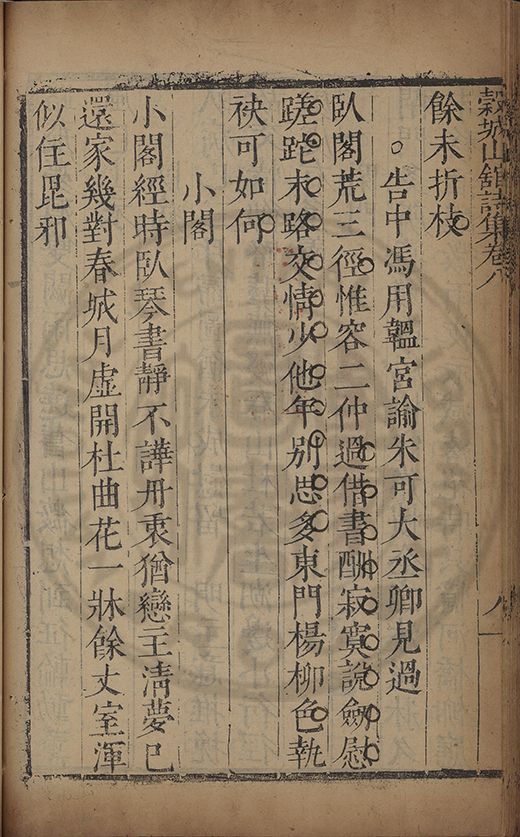 穀城山館詩集卷八
八 一
餘未折枝
告中馮用韞宮諭朱可大丞卿見過
臥閣荒三徑惟容二仲過借書酬寂寞說劍慰
蹉跎末路交情少他年別思多東門楊柳色執
袂可如何
小閣
小閣經時臥琴書靜不譁丹衷猶戀主清夢已
還家幾對春城月虛開杜曲花一牀餘丈室渾
似住毘邪